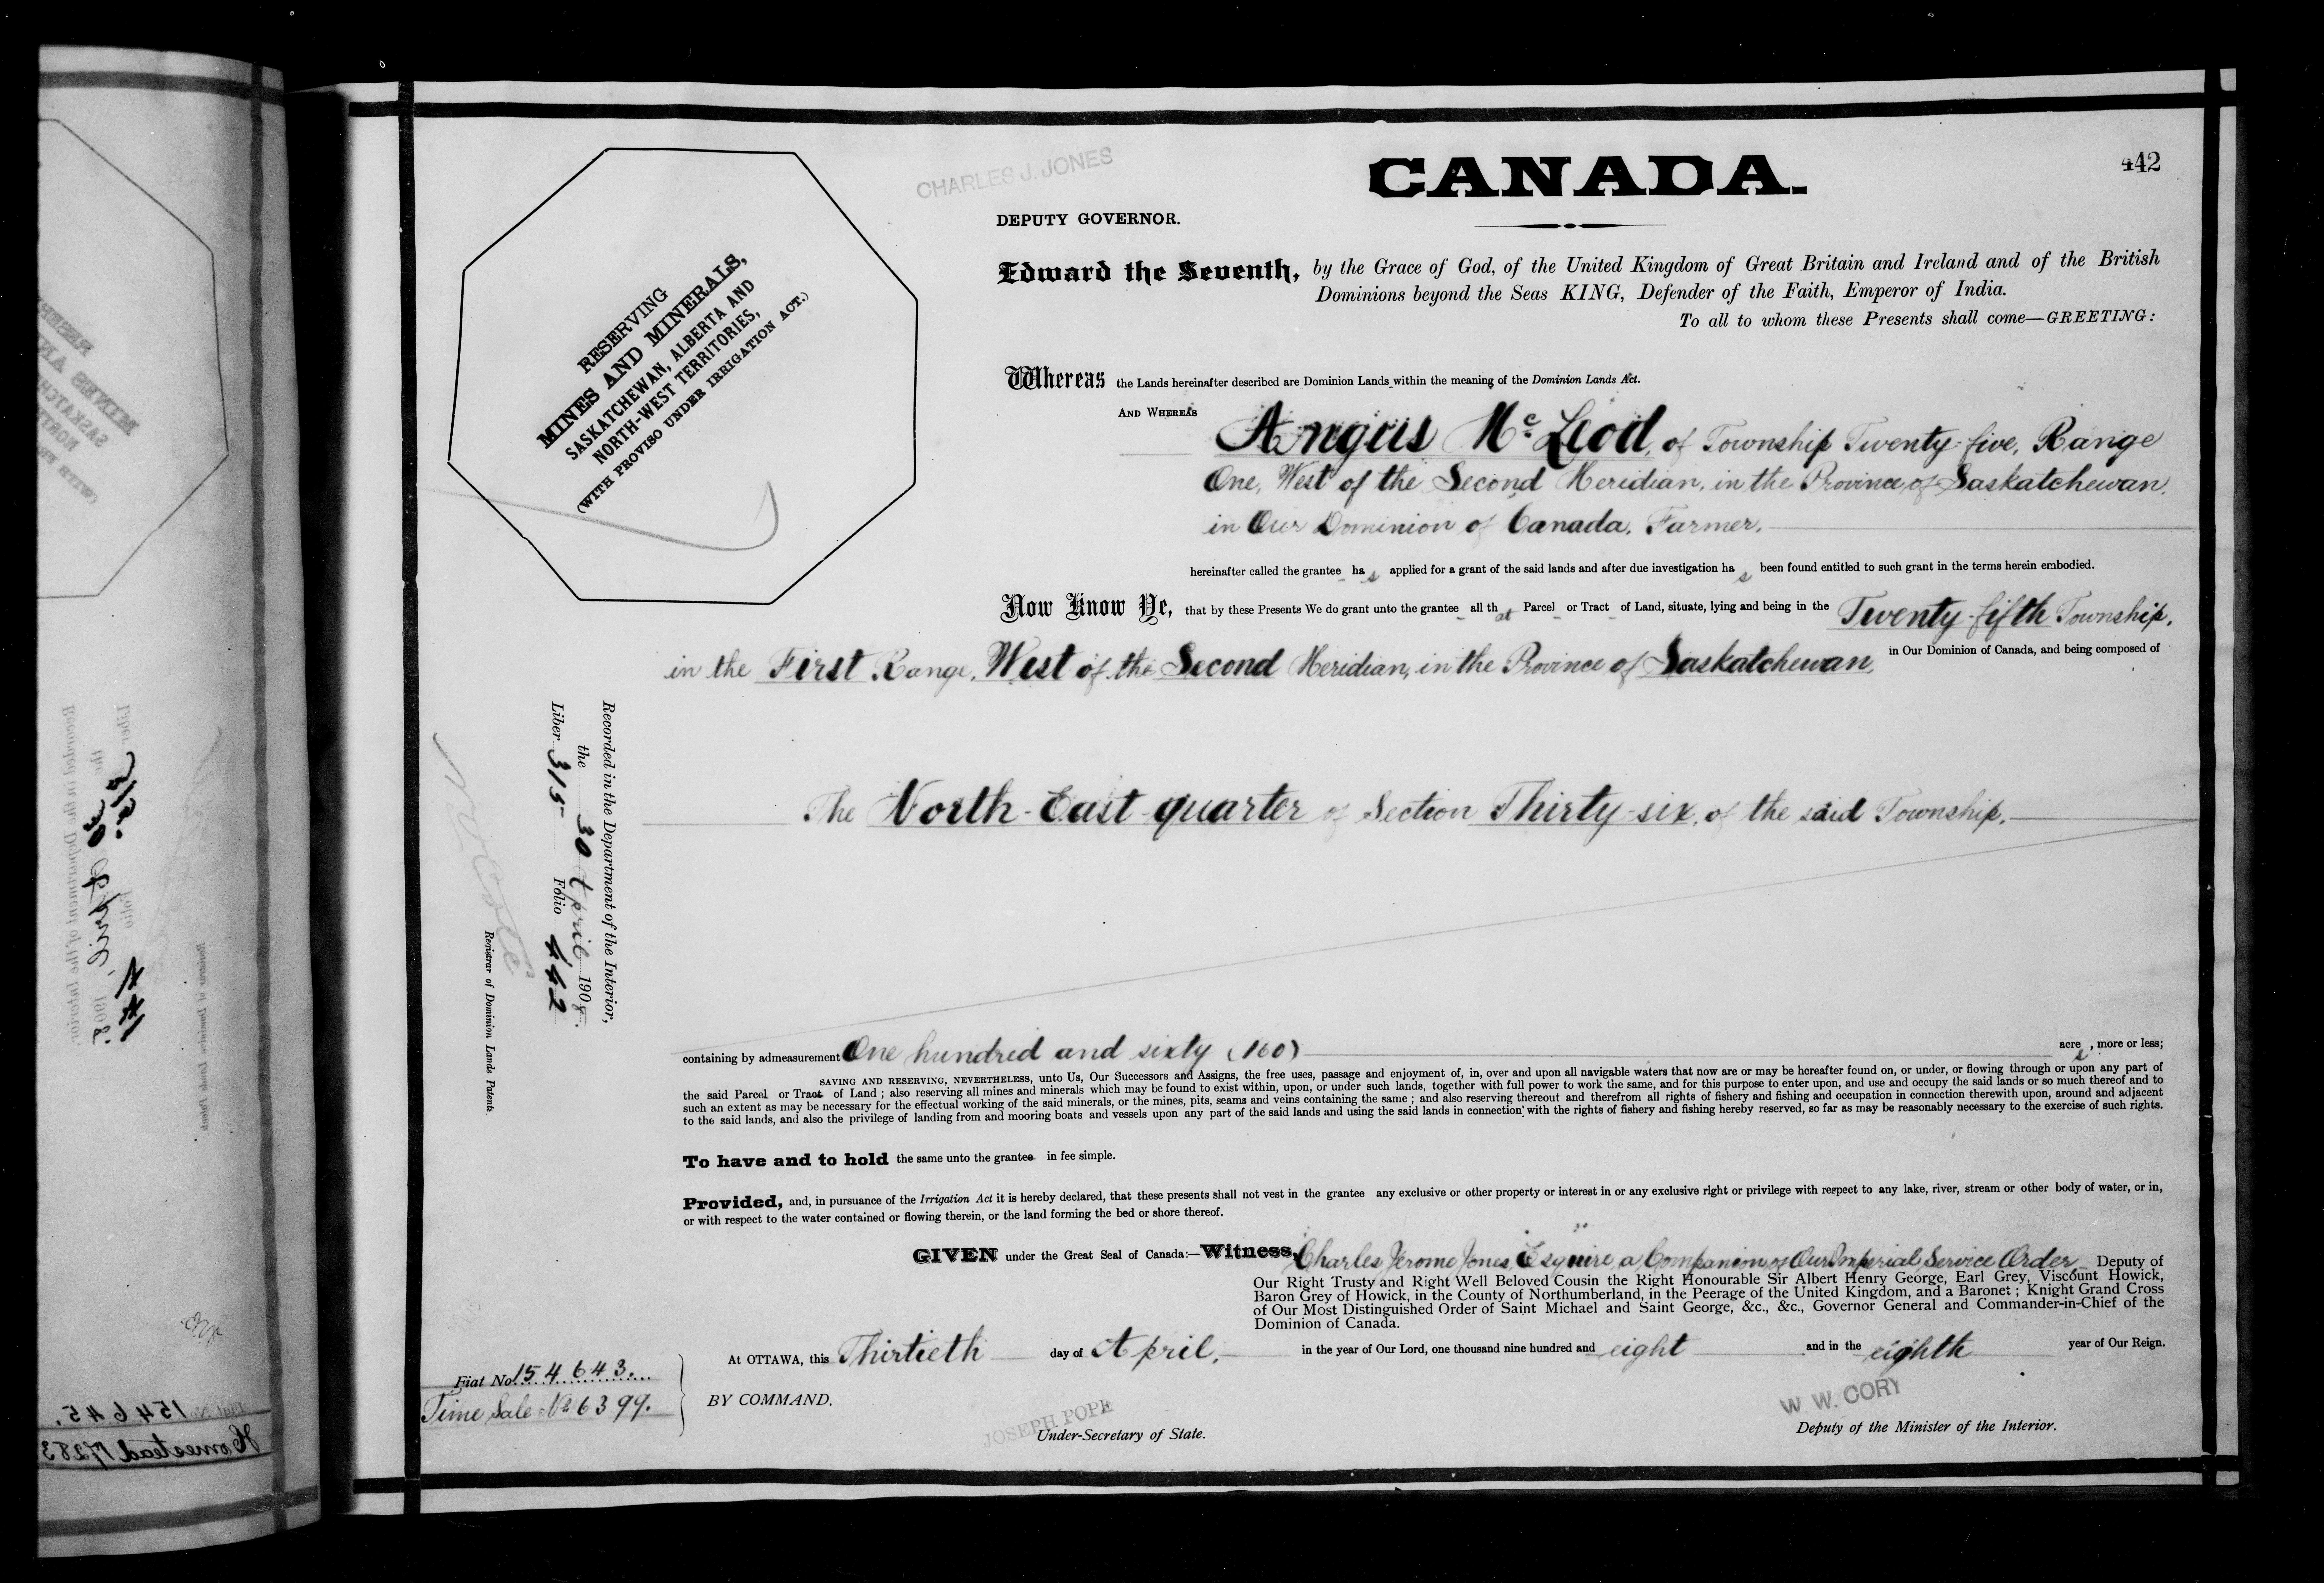 CHARLES J. JONES
CANADA.
442
DEPUTY GOVERNOR.
RESERVING
MINES AND MINERALS,
SASKATCHEWAN, ALBERTA AND
NORTH-WEST TERRITORIES,
(WITH PROVISO UNDER IRRIGATION ACT.)
Edward the Seventh, by the Grace of God, of the United Kingdom of Great Britain and Ireland and of the British
Dominions beyond the Seas KING, Defender of the Faith, Emperor of India.
To all to whom these Presents shall come—GREETING:
Whereas the Lands hereinafter described are Dominion Lands within the meaning of the Dominion Lands Act.
AND WHEREAS
Angus McLeod, of Township Twenty-five, Range
One, West of the Second Meridian, in the Province of Saskatchewan,
in Our Dominion of Canada, Farmer,
hereinafter called the grantee has applied for a grant of the said lands and after due investigation has been found entitled to such grant in the terms herein embodied.
Now Know Ye, that by these Presents We do grant unto the grantee all that Parcel or Tract of Land, situate, lying and being in the Twenty-fifth Township,
in the First Range, West of the Second Meridian, in the Province of Saskatchewan, in Our Dominion of Canada, and being composed of
The North-East quarter of Section Thirty-six, of the said Township.
Recorded in the Department of the Interior,
the 30 April 1908.
Liber 315 Folio 442
Registrar of Dominion Lands Patents
containing by admeasurement One hundred and sixty (160) acres, more or less;
SAVING AND RESERVING, NEVERTHELESS, unto Us, Our Successors and Assigns, the free uses, passage and enjoyment of, in, over and upon all navigable waters that now are or may be hereafter found on, or under, or flowing through or upon any part of
the said Parcel or Tract of Land; also reserving all mines and minerals which may be found to exist within, upon, or under such lands, together with full power to work the same, and for this purpose to enter upon, and use and occupy the said lands or so much thereof and to
such an extent as may be necessary for the effectual working of the said minerals, or the mines, pits, seams and veins containing the same; and also reserving thereout and therefrom all rights of fishery and fishing and occupation in connection therewith upon, around and adjacent
to the said lands, and also the privilege of landing from and mooring boats and vessels upon any part of the said lands and using the said lands in connection with the rights of fishery and fishing hereby reserved, so far as may be reasonably necessary to the exercise of such rights.
To have and to hold the same unto the grantee in fee simple.
Provided, and, in pursuance of the Irrigation Act it is hereby declared, that these presents shall not vest in the grantee any exclusive or other property or interest in or any exclusive right or privilege with respect to any lake, river, stream or other body of water, or in,
or with respect to the water contained or flowing therein, or the land forming the bed or shore thereof.
GIVEN under the Great Seal of Canada:—Witness, Charles Jerome Jones, Esquire, a Companion of Our Imperial Service Order, Deputy of
Our Right Trusty and Right Well Beloved Cousin the Right Honourable Sir Albert Henry George, Earl Grey, Viscount Howick,
Baron Grey of Howick, in the County of Northumberland, in the Peerage of the United Kingdom, and a Baronet; Knight Grand Cross
of Our Most Distinguished Order of Saint Michael and Saint George, &c., &c., Governor General and Commander-in-Chief of the
Dominion of Canada.
At OTTAWA, this Thirtieth day of April, in the year of Our Lord, one thousand nine hundred and eight and in the eighth year of Our Reign.
Fiat No. 154643.
Time Sale No 6399.
BY COMMAND.
JOSEPH POPE
Under-Secretary of State.
W. W. CORY
Deputy of the Minister of the Interior.